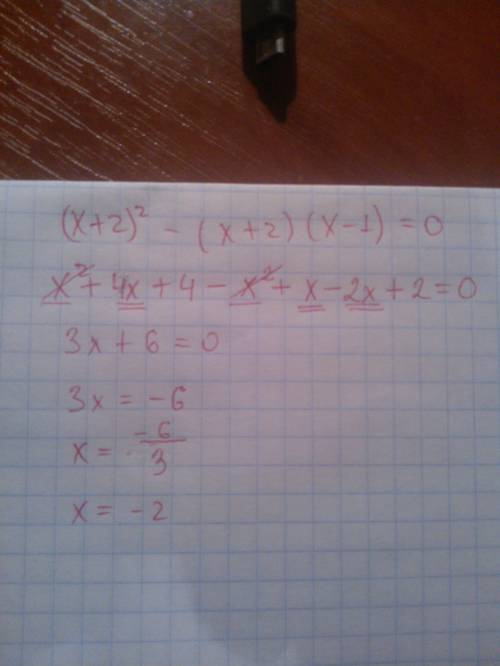 (x+2)² - (x+2)(x-1) = 0
x² + 4x + 4 - x² + x - 2x + 2 = 0
3x + 6 = 0
3x = -6
x = -6/3
x = -2